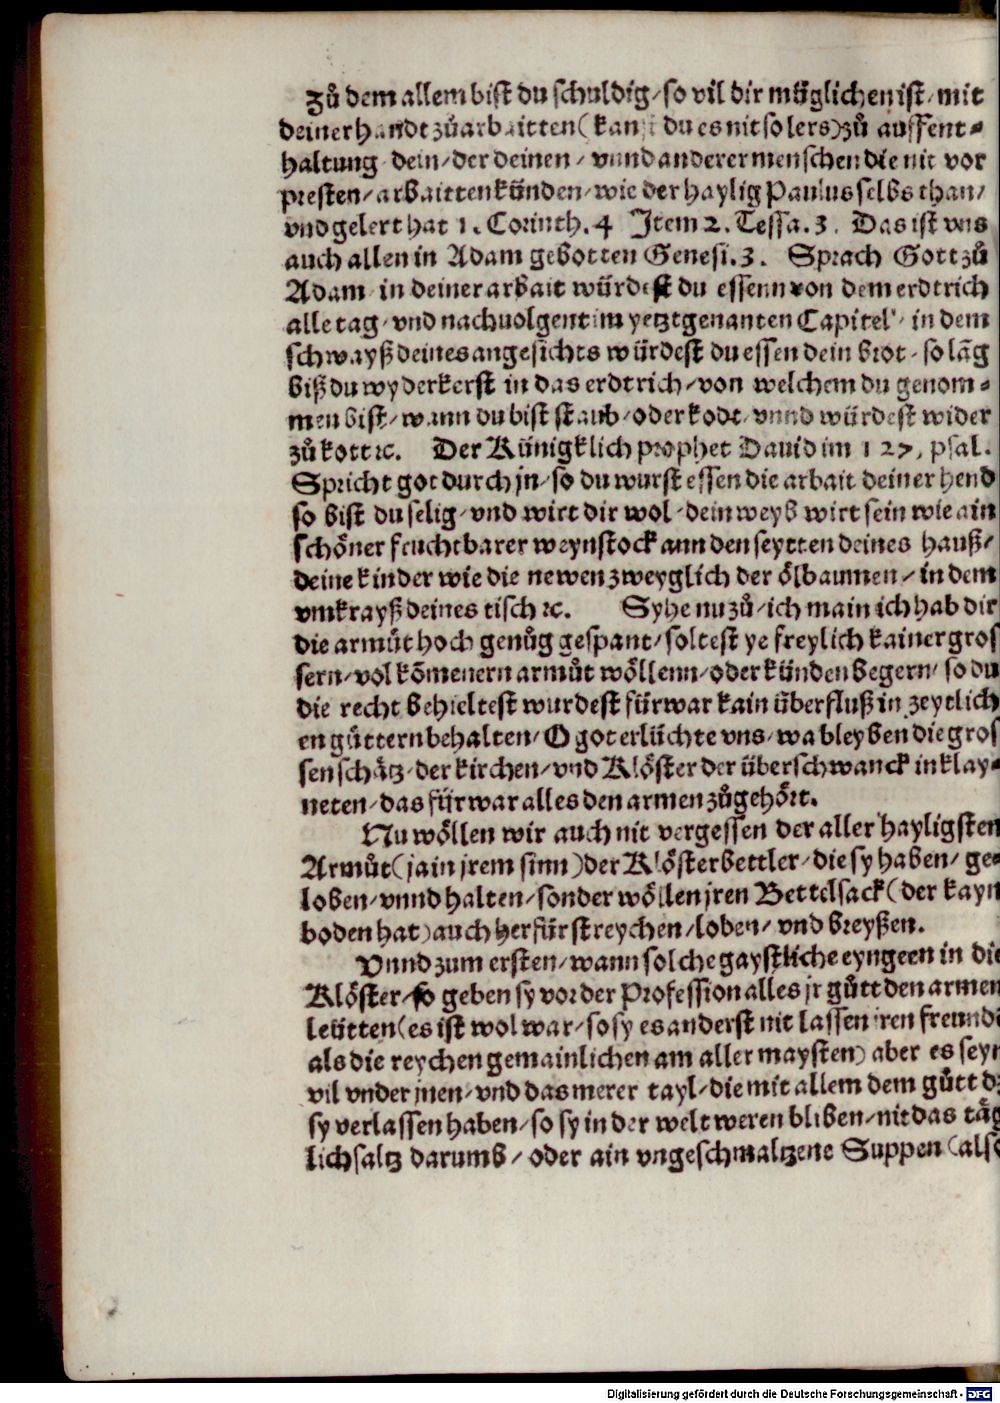 Zů dem allem bist du schuldig/ so vil dir müglichen ist/ mit
deiner handt zů arbaitten (kanst du es nit so lers) zů auffent⸗
haltung dein/ der deinen/ vnnd anderer menschen die nit vor
presten/ arbaitten künden/ wie der haylig Paulus selbs than/
vnd gelert hat 1. Corinth. 4 Item 2. Tessa. 3. Das ist vns
auch allen in Adam gebotten Genesi. 3. Sprach Gott zů
Adam in deiner arbait würdest du essenn von dem erdtrich
alle tag/ vnd nachuolgent im yetztgenanten Capitel/ in dem
schwayß deines angesichts würdest du essen dein brot/ so lãg
biß du wyderkerst in das erdtrich/ von welchem du genom⸗
men bist/ wann du bist staub/ oder kodt/ vnnd würdest wider
zů kott ꝛc. Der Künigklich prophet Dauid im 127. psal.
Spricht got durch jn/ so du wurst essen die arbait deiner hend
so bist du selig/ vnd wirt dir wol/ dein weyb wirt sein wie ain
schöner fruchtbarer weynstock ann den seytten deines hauß/
deine kinder wie die newen zweyglich der ölbaumen/ in dem
vmkrayß deines tisch ꝛc. Syhe nu zů/ ich main ich hab dir
die armůt hoch genůg gespant/ soltest ye freylich kainer gros
sern/ volkõmenern armůt wöllenn/ oder künden begern/ so du
die recht behieltest wurdest fürwar kain überfluß in zeytlich
en güttern behalten/ O got erlüchte vns/ wa bleyben die gros
sen schätz/ der kirchen/ vnd Klöster der überschwanck in klay⸗
neten/ das fürwar alles den armen zůgehört.
Nu wöllen wir auch nit vergessen der aller hayligsten
Armůt (ja in jrem sinn) der Klösterbettler/ die sy haben/ ge⸗
loben/ vnnd halten/ sonder wöllen jren Bettelsack (der kayn
boden hat) auch herfür streychen/ loben/ vnd breyßen.
Vnnd zum ersten/ wann solche gaystliche eyngeen in die
Klöster/ so geben sy vor der Profession alles jr gůtt den armen
leütten (es ist wol war/ so sy es anderst nit lassen jren freund
als die reychen gemainlichen am aller maysten) aber es seyn
vil vnder jnen/ vnd das merer tayl/ die mit allem dem gůtt dz
sy verlassen haben/ so sy in der welt weren bliben/ nit das täg
lich saltz darumb/ oder ain vngeschmaltzene Suppen (also
Digitalisierung gefördert durch die Deutsche Forschungsgemeinschaft - DFG